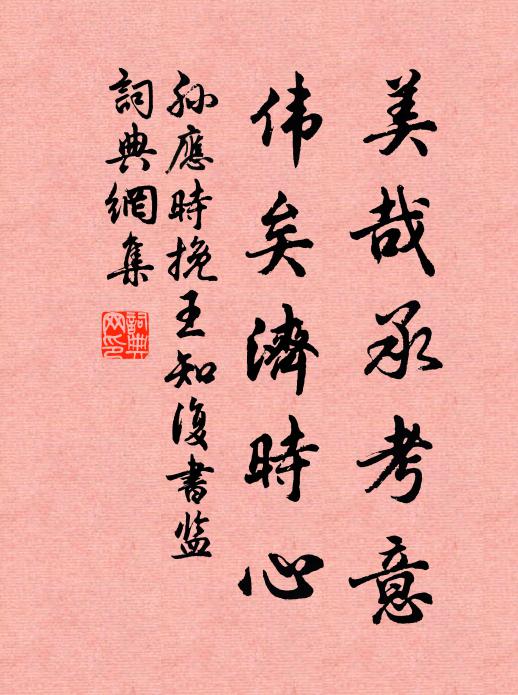 美哉承考意
伟矣濟時心
孙應時挽王知復書监
詞典網集
詞典